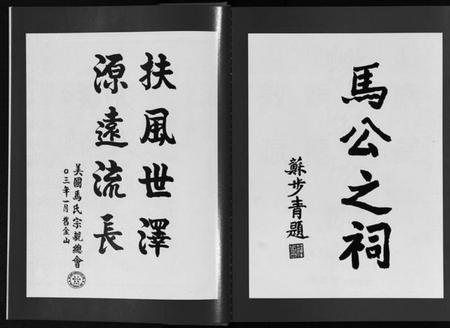 馬公之祠
蘇步青題
扶風世澤
源遠流長
美國馬氏宗親總會
〇三年一月舊金山